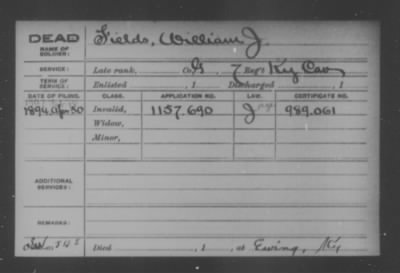 DEAD Fields, William J.
NAME OF SOLDIER:
SERVICE: Late rank, Co. G, 7 Reg't Ky Cav
TERM OF SERVICE: Enlisted , 1 Discharged , 1
DATE OF FILING. CLASS. APPLICATION NO. LAW. CERTIFICATE NO.
1894 Apr 30 Invalid, 1157.690 J 989.061
Widow,
Minor,
ADDITIONAL SERVICES:
REMARKS:
Died , 1 , at Ewing, Ky